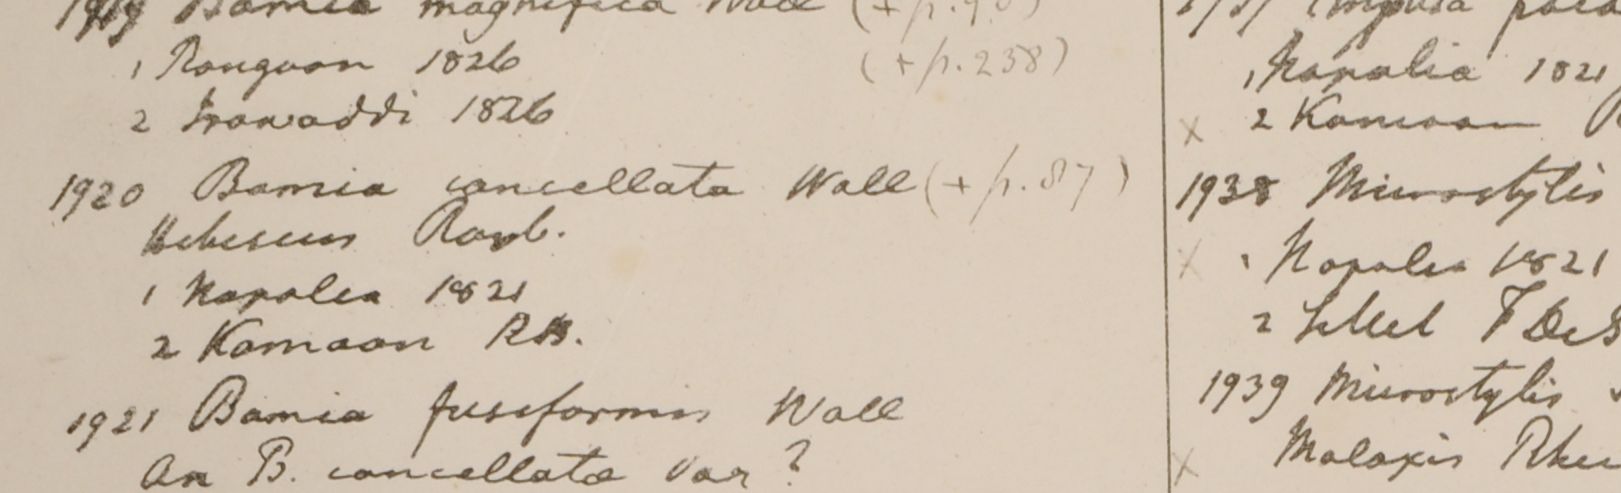 1919 Bamia magnifica Wall (+ p.
1 Rangoon 1826 (+ p. 238)
2 Irawaddi 1826
1920 Bamia cancellata Wall (+ p. 87)
Hibiscus Roxb.
1 Napalia 1821
2 Kamaon R.B.
1921 Bamia fusiformis Wall
An B. cancellata var ?
1 Napalia 1821
x 2 Kamaon
1938 Microstylis
x 1 Napalia 1821
2 Silhet F De S
1939 Microstylis
x Malaxis Rhe